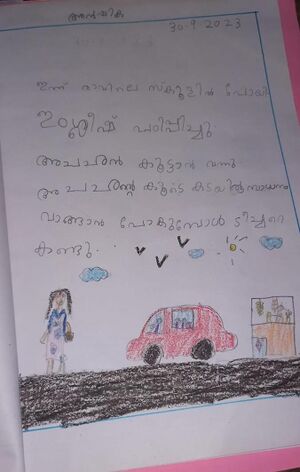 അൻമിക
30-9-2023
ഇന്ന് രാവിലെ സ്കൂളിൽ പോയി
ഇംഗ്ലീഷ് പഠിപ്പിച്ചു.
അച്ചാച്ചൻ കൂട്ടാൻ വന്നു
കൂടെ കടയിൽ സാധനം
വാങ്ങാൻ പോകുമ്പോൾ ടീച്ചറെ
കണ്ടു.